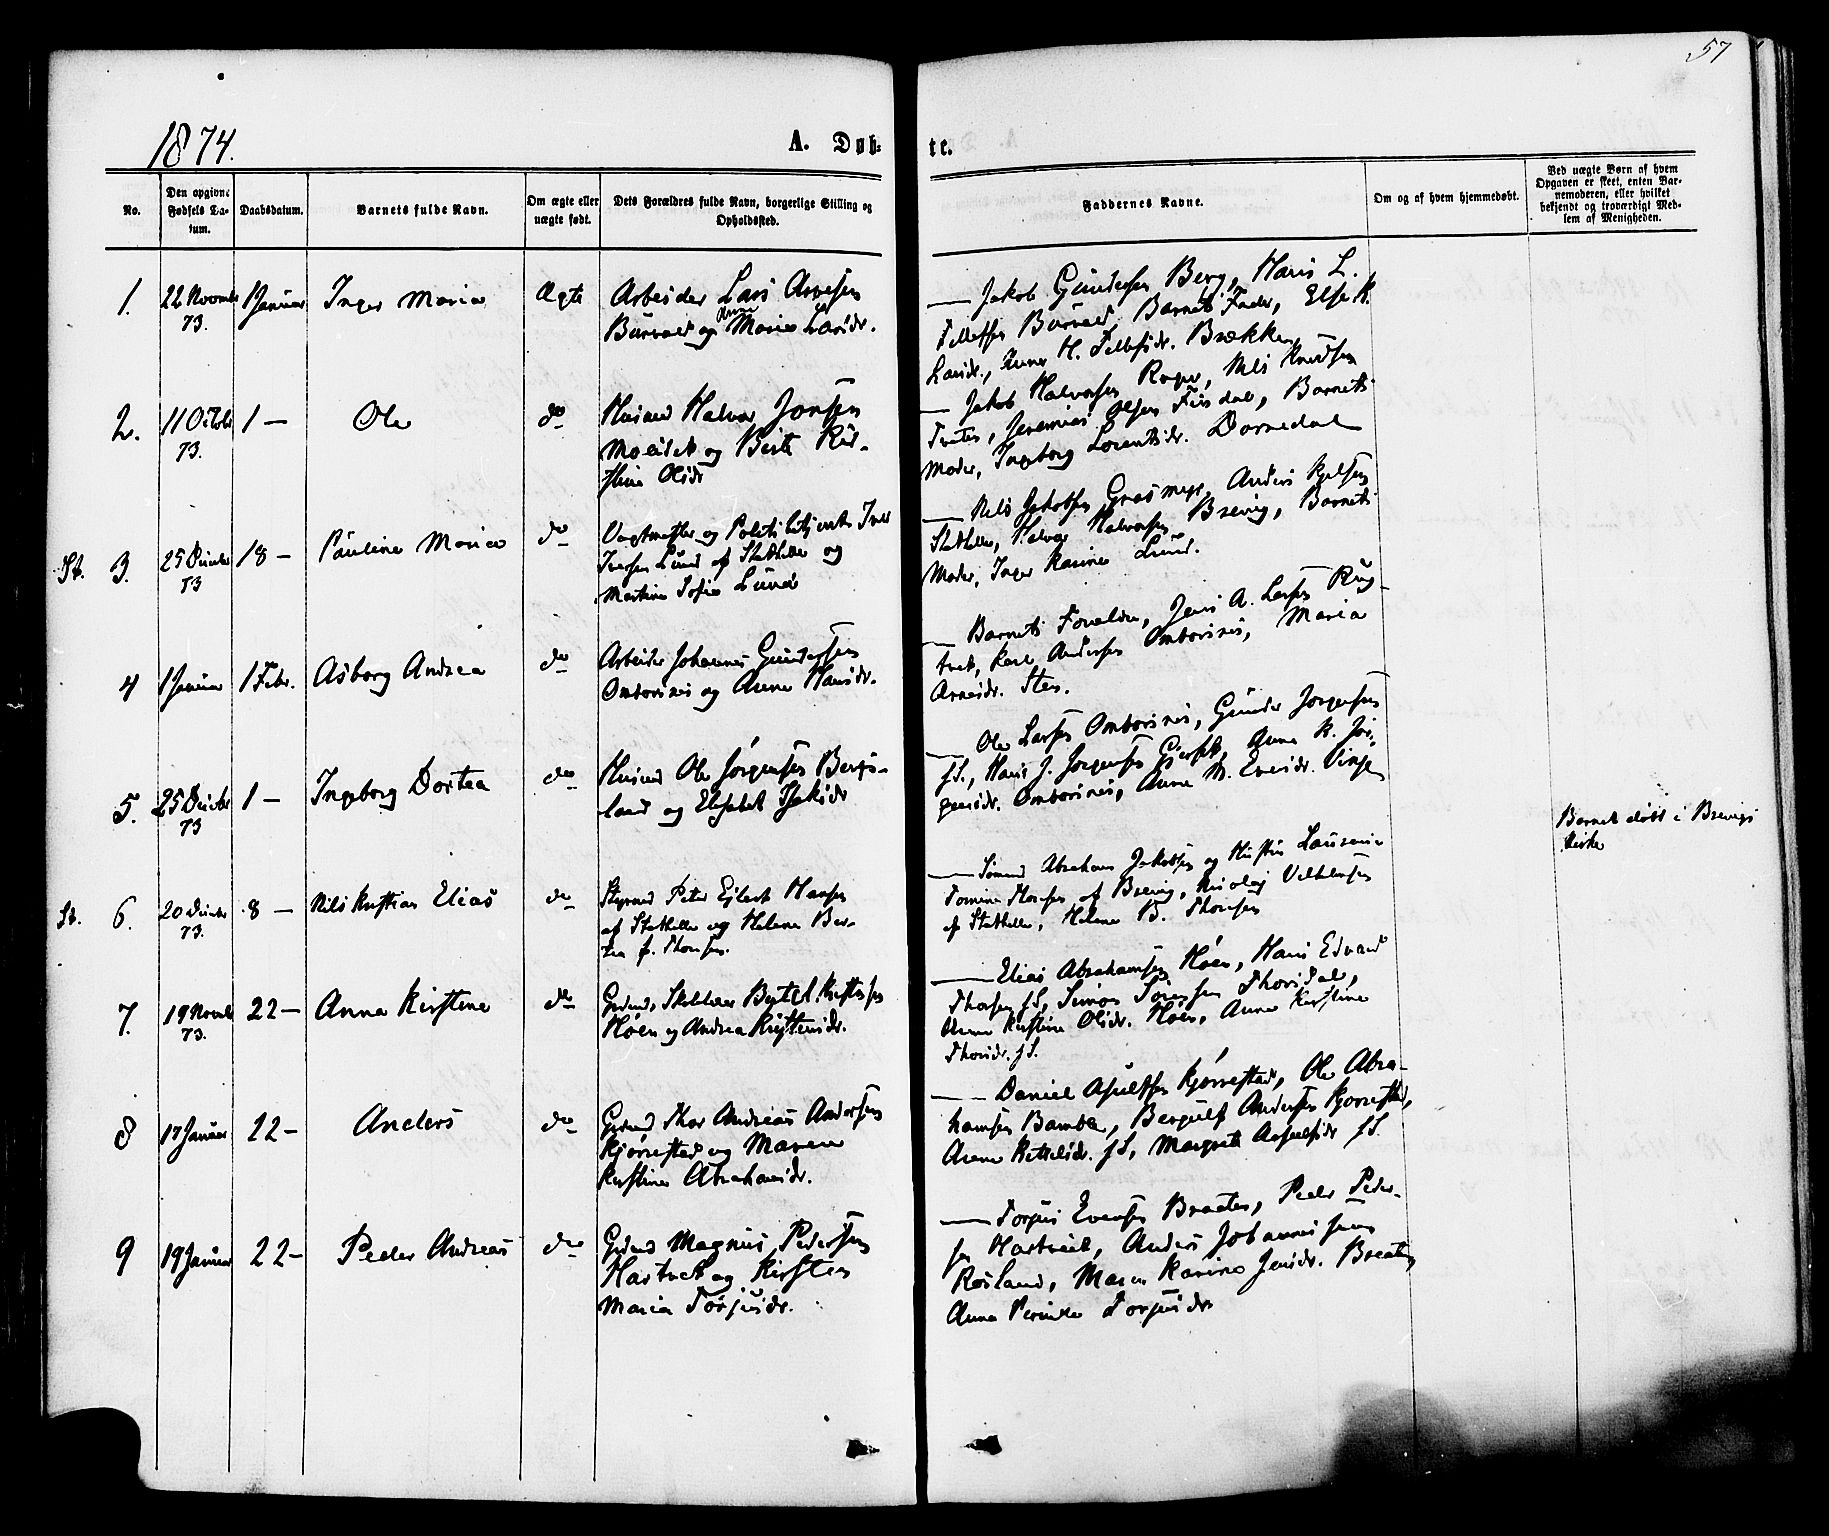 57
1874.
A. Døb-
te.
No.
Den opgivne Fødsels Datum.
Daabsdatum.
Barnets fulde Navn.
Om ægte eller uægte født.
Dets Forældres fulde Navn, borgerlige Stilling og Opholdssted.
Faddernes Navne.
Om og af hvem hjemmedøbt.
Ved uægte Børn af hvem Opgaven er skeet, enten Barnemoderen, eller hvilket bekjendt og troværdigt Medlem af Menigheden.
1. 22 Novembr 73. 1 Januar Inger Maria Ægte Arbeider Lars
og Anne Maria Larsdr.
— Jakob Gundersen Berg, Hans L.
Barnets Fader, Else K.
Larsdr.,
2. 11 Octobr 73. 1 — Ole do Husmd Halvor Jonsen
og Berte Kir-
stine Olsdr
— Jakob Halvorsen Nils Knudsen
Jeremias Olsen Barnets
Moder, Ingeborg Lorentsdr. Dornedal
St. 3. 25 Decmbr 73 18 — Pauline Maria do Vagtmester og Politibetjent Iver
Iversen Lund af Stathelle og
Martine Sofie Lund
— Nils Jakobsen Anders
Stathelle, Halvor Halvorsen Brevig, Barnets
Moder, Inger Karine Lund.
4 1 Januar 1 Febr. Asborg Andrea do Arbeider Johannes Gundersen
Omborsnes og Anne Hansdr.
— Barnets Forældre, Jens A. Larsen Rug-
tvet, Karl Andersen Omborsnes, Maria
Arnesdr. Sten.
5. 25 Decmbr 73 1 — Ingeborg Dortea do Husmd Ole Jørgensen Bergs-
land og Elisabet Isaksdr
— Ole Larsen Omborsnes, Gunder Jørgensen
sS., Hans J. Jørgensen Anne K. Jør-
gensdr. Omborsnes, Anne M. Evensdr.
St. 6. 20 Decmbr 73. 8 — Nils Kristian Elias do Styrmd Peter Ejlert Hansen
af Stathelle og Helene Ber-
tea f. Thorsen.
— Sømand Abraham Jakobsen og Hustru
Thorsen af Brevig, Nicolaj Vilhelmsen
af Stathelle, Helene B. Thorsen
Barnet døbt i Brevigs
Kirke
7. 19 Novembr 73. 22 — Anna Kirstine do Grdmd, Skolelærer Bertel Kristensen
Høen og Andrea Kristensdr.
— Elias Abrahamsen Høen, Hans Edvard
Thorsen sS, Simon Sørensen Thorsdal,
Anne Kirstine Olsdr. Høen, Anne Kirstine
Thorsdr. sS.
8 17 Januar 22 — Anders do Grdmd Thor Andreas Andersen
Kjørrestad og Maren
Kirstine Abrahamsdr.
— Daniel Kjørrestad, Ole Abra-
hamsen Bamble, Bergulf Andersen Kjørrestad,
Anne Kittelsdr. sS, Margrete sS.
9 19 Januar 22 — Peder Andreas do Grdmd Magnus Pedersen
Hartvet og Kirsten
Maria Torjusdr.
— Torjus Evensen Peder Peder-
sen Hartvet, Anders Johannessen
Røsland, Maren Karine Jensdr.
Anna Torjusdr